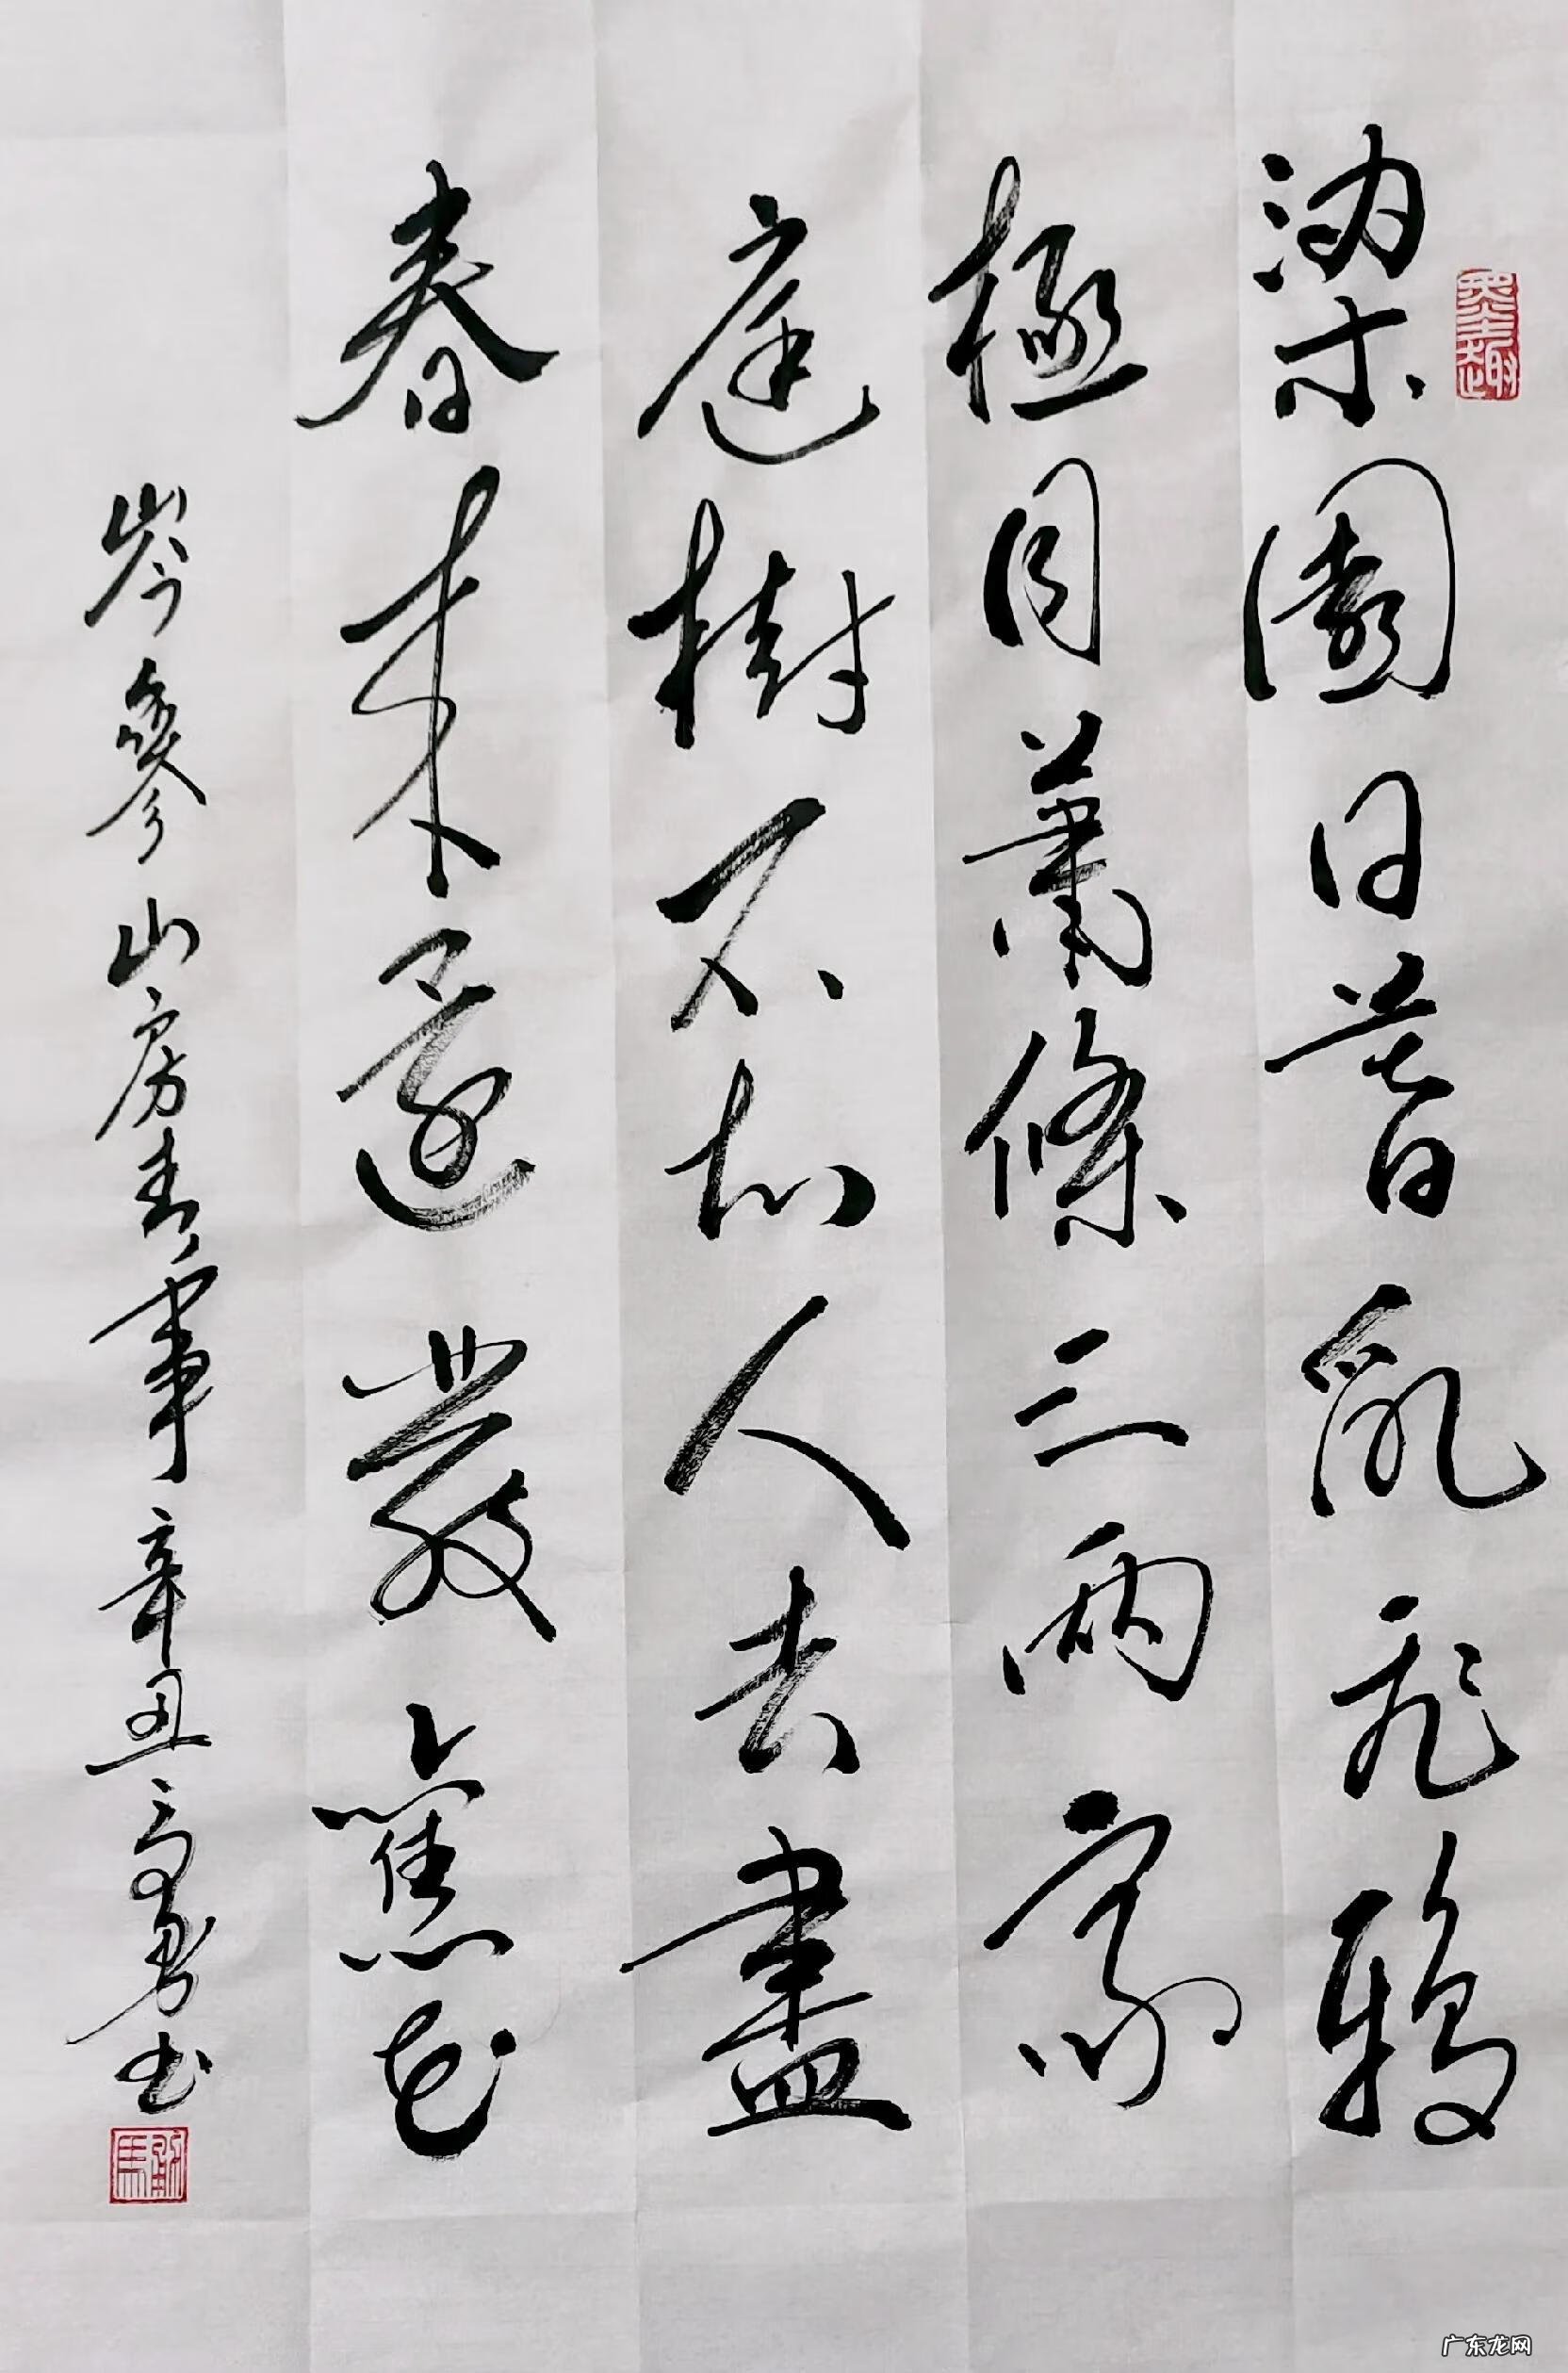 梁園日暮亂飛鴉
極目蕭條三兩家
庭樹不知人去盡
春來還發舊花
岑參山房春事辛丑勇书
广东龙网